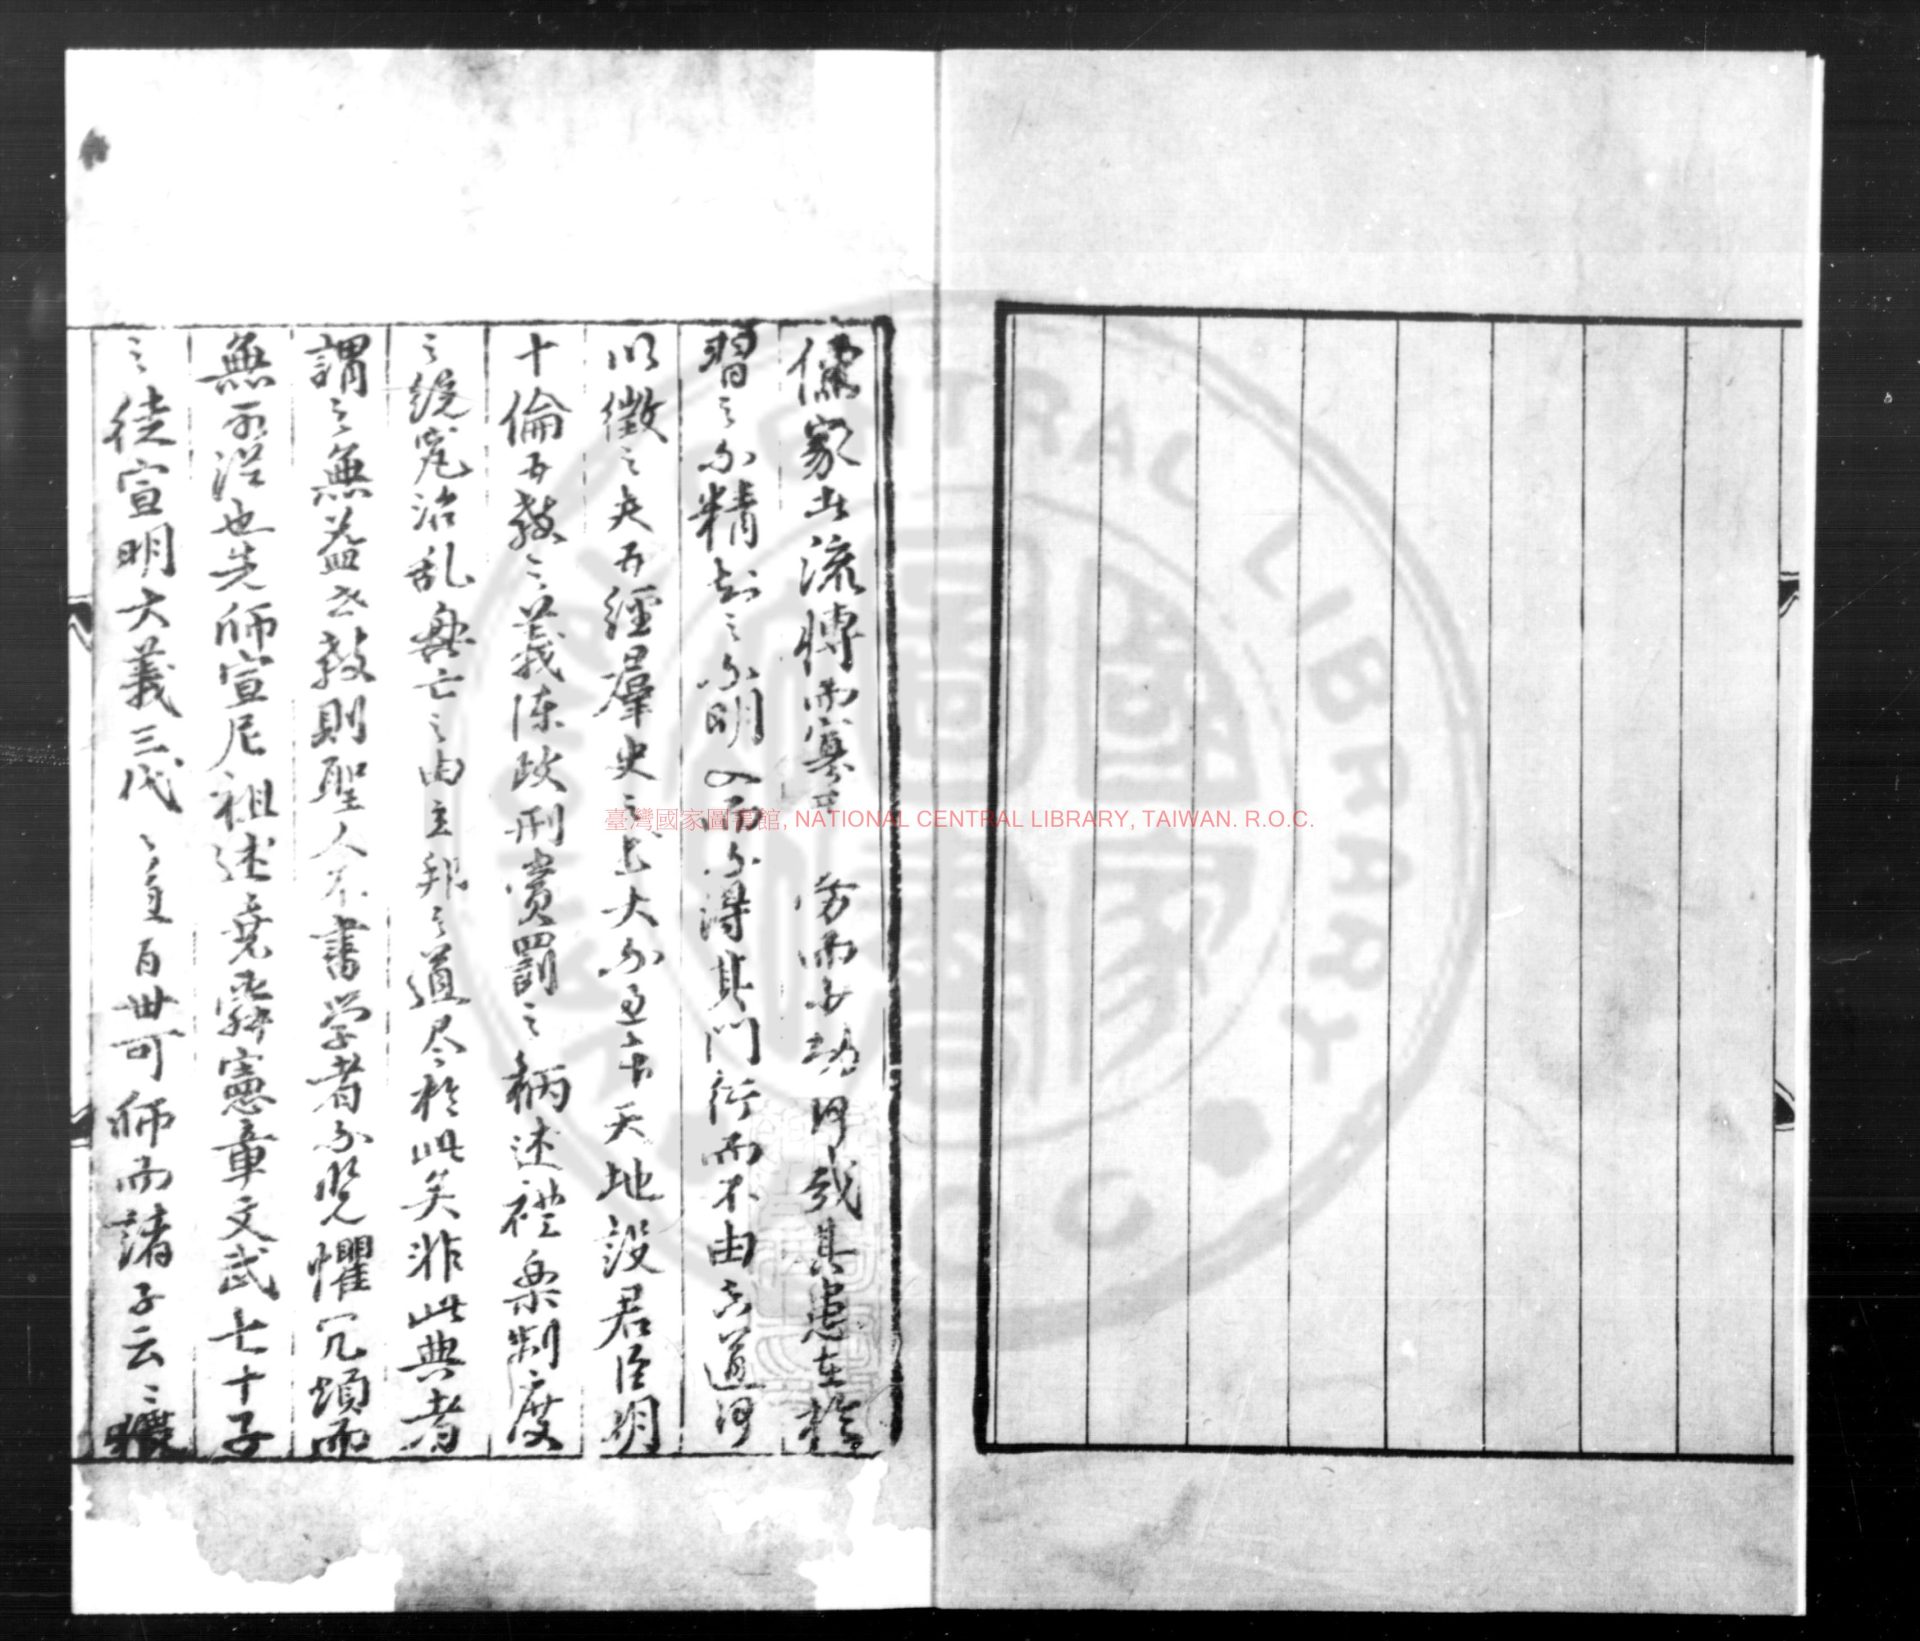 儒家者流博而寡要勞而少功何哉其患在於
習之不精知之不明入而不得其門行而不由其道何
以徵之夫五經羣史之書大不過本天地設君臣明
十倫五教之義陳政刑賞罰之柄述禮樂制度
之統究治乱興亡之由立邦之道尽於此矣非此典者
謂之無益世教則聖人不書学者不覽懼冗煩而
無所從也先師宣尼祖述堯舜憲章文武七十子
之徒宣明大義三代之道百世可師而諸子云云
臺灣國家圖書館, NATIONAL CENTRAL LIBRARY, TAIWAN. R.O.C.